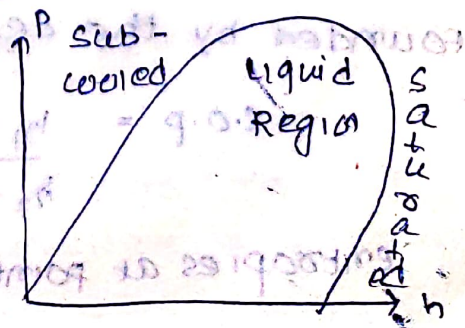 P
Sub-
cooled
Liquid
Region
Saturated
h